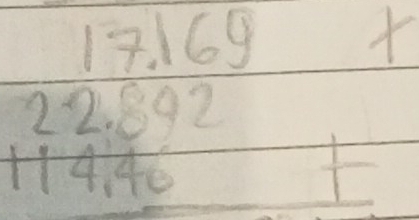 17.169 +
22.892
114.46 +